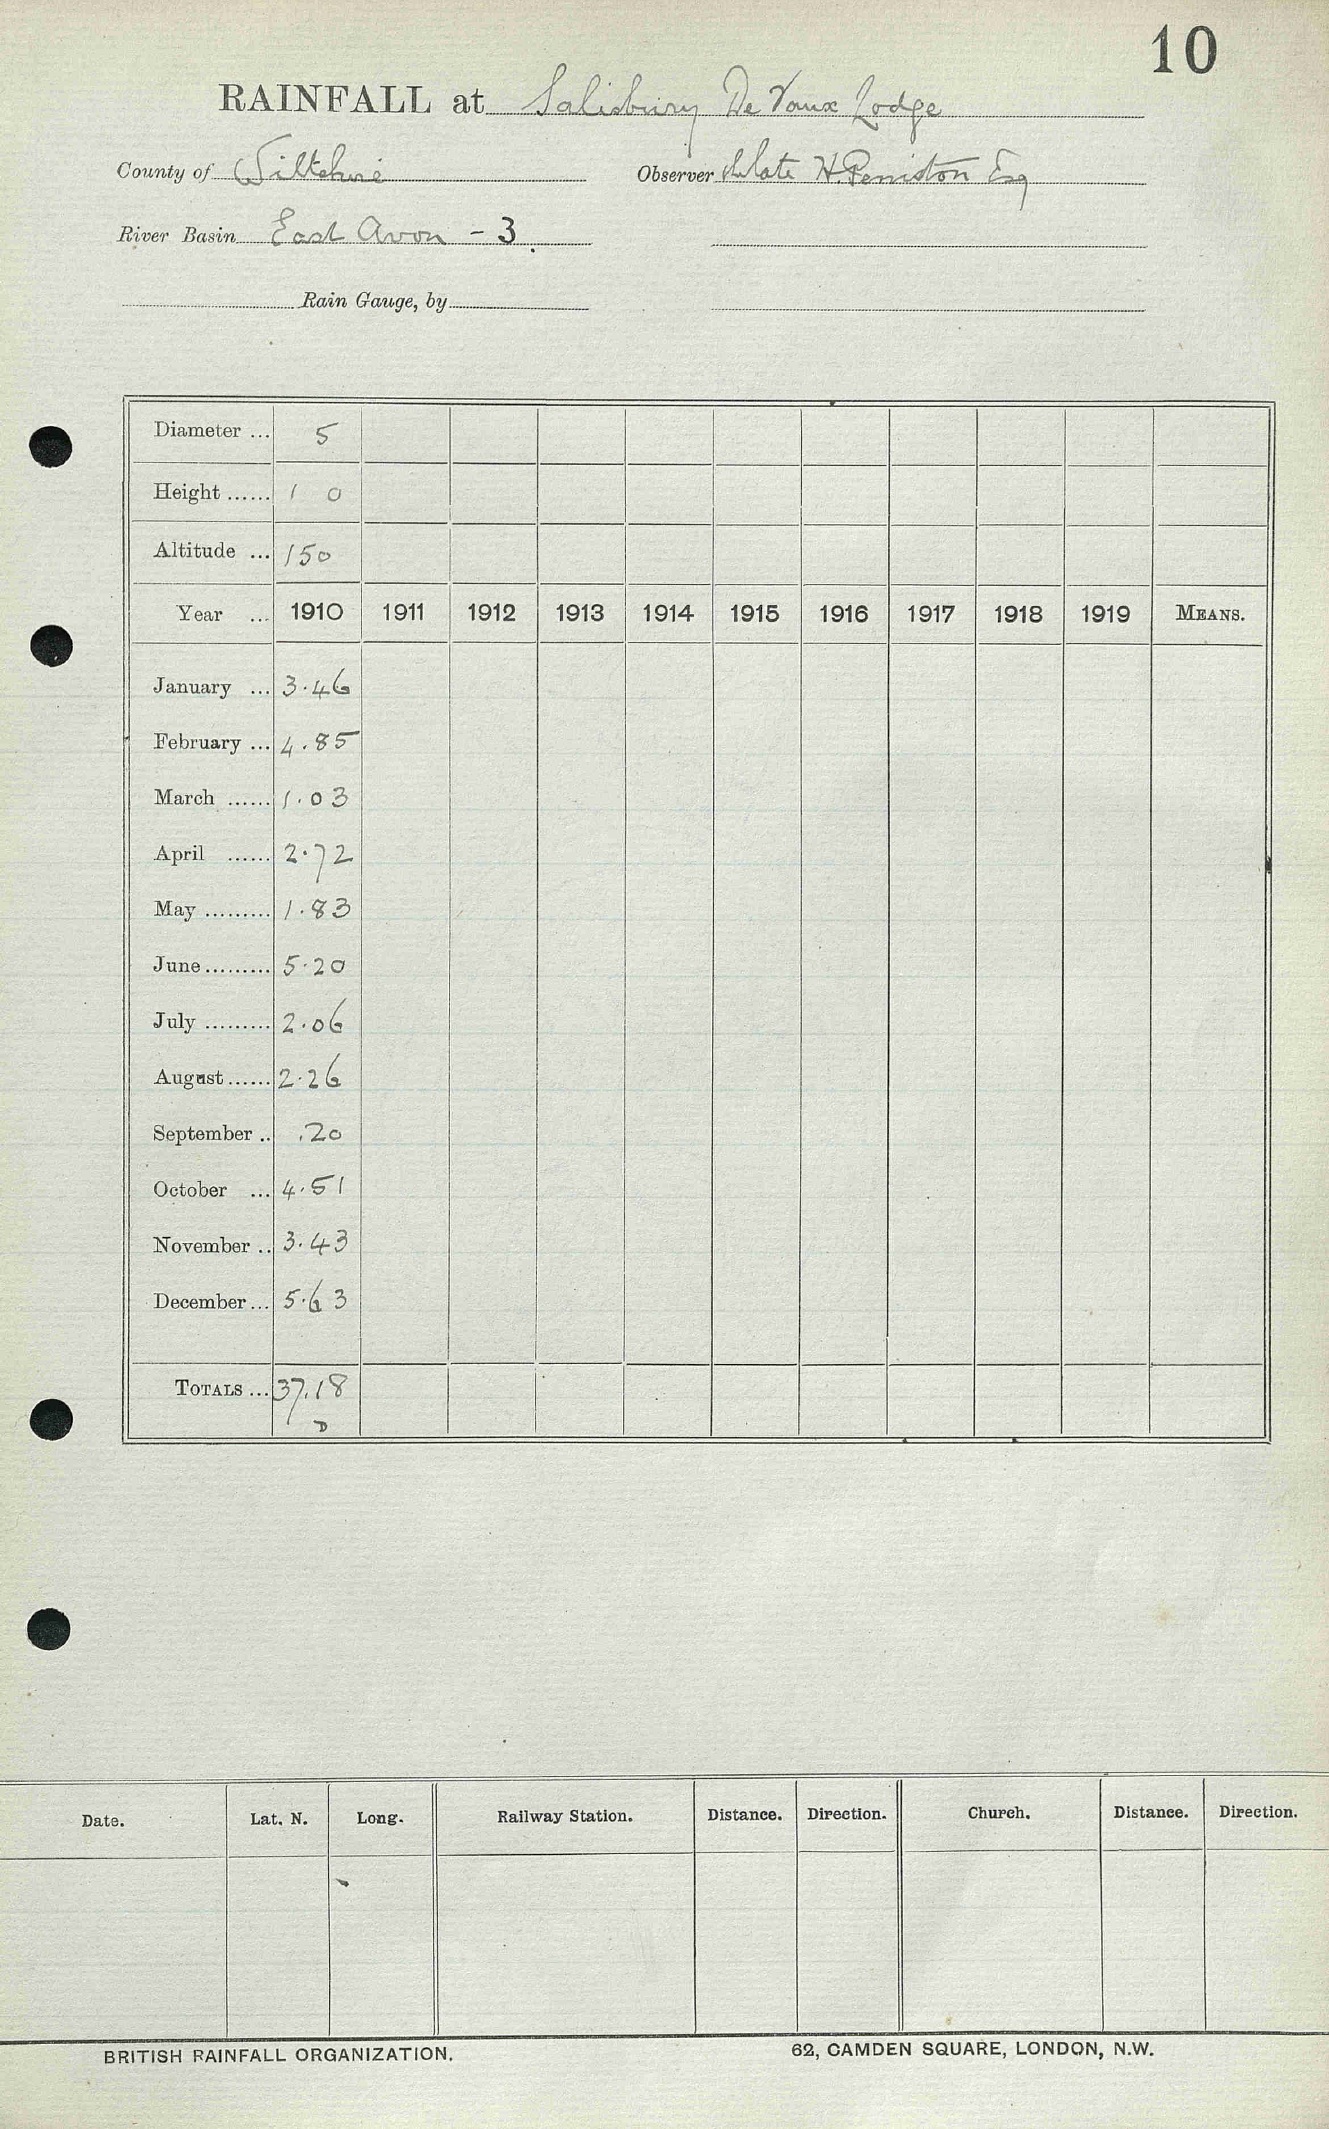 10
RAINFALL at Salisbury De Vaux Lodge
County of Wiltshire Observer late H. Peniston Esq
River Basin East Avon - 3
Rain Gauge, by
Diameter ... 5
Height ...... 1 0
Altitude ... 150
Year ... 1910 1911 1912 1913 1914 1915 1916 1917 1918 1919 MEANS.
January ... 3.46
February ... 4.85
March ...... 1.03
April ...... 2.72
May ......... 1.83
June ......... 5.20
July ......... 2.06
August ...... 2.26
September .. .20
October ... 4.51
November .. 3.43
December ... 5.63
TOTALS ... 37.18
D
Date. Lat. N. Long. Railway Station. Distance. Direction. Church. Distance. Direction.
BRITISH RAINFALL ORGANIZATION. 62, CAMDEN SQUARE, LONDON, N.W.